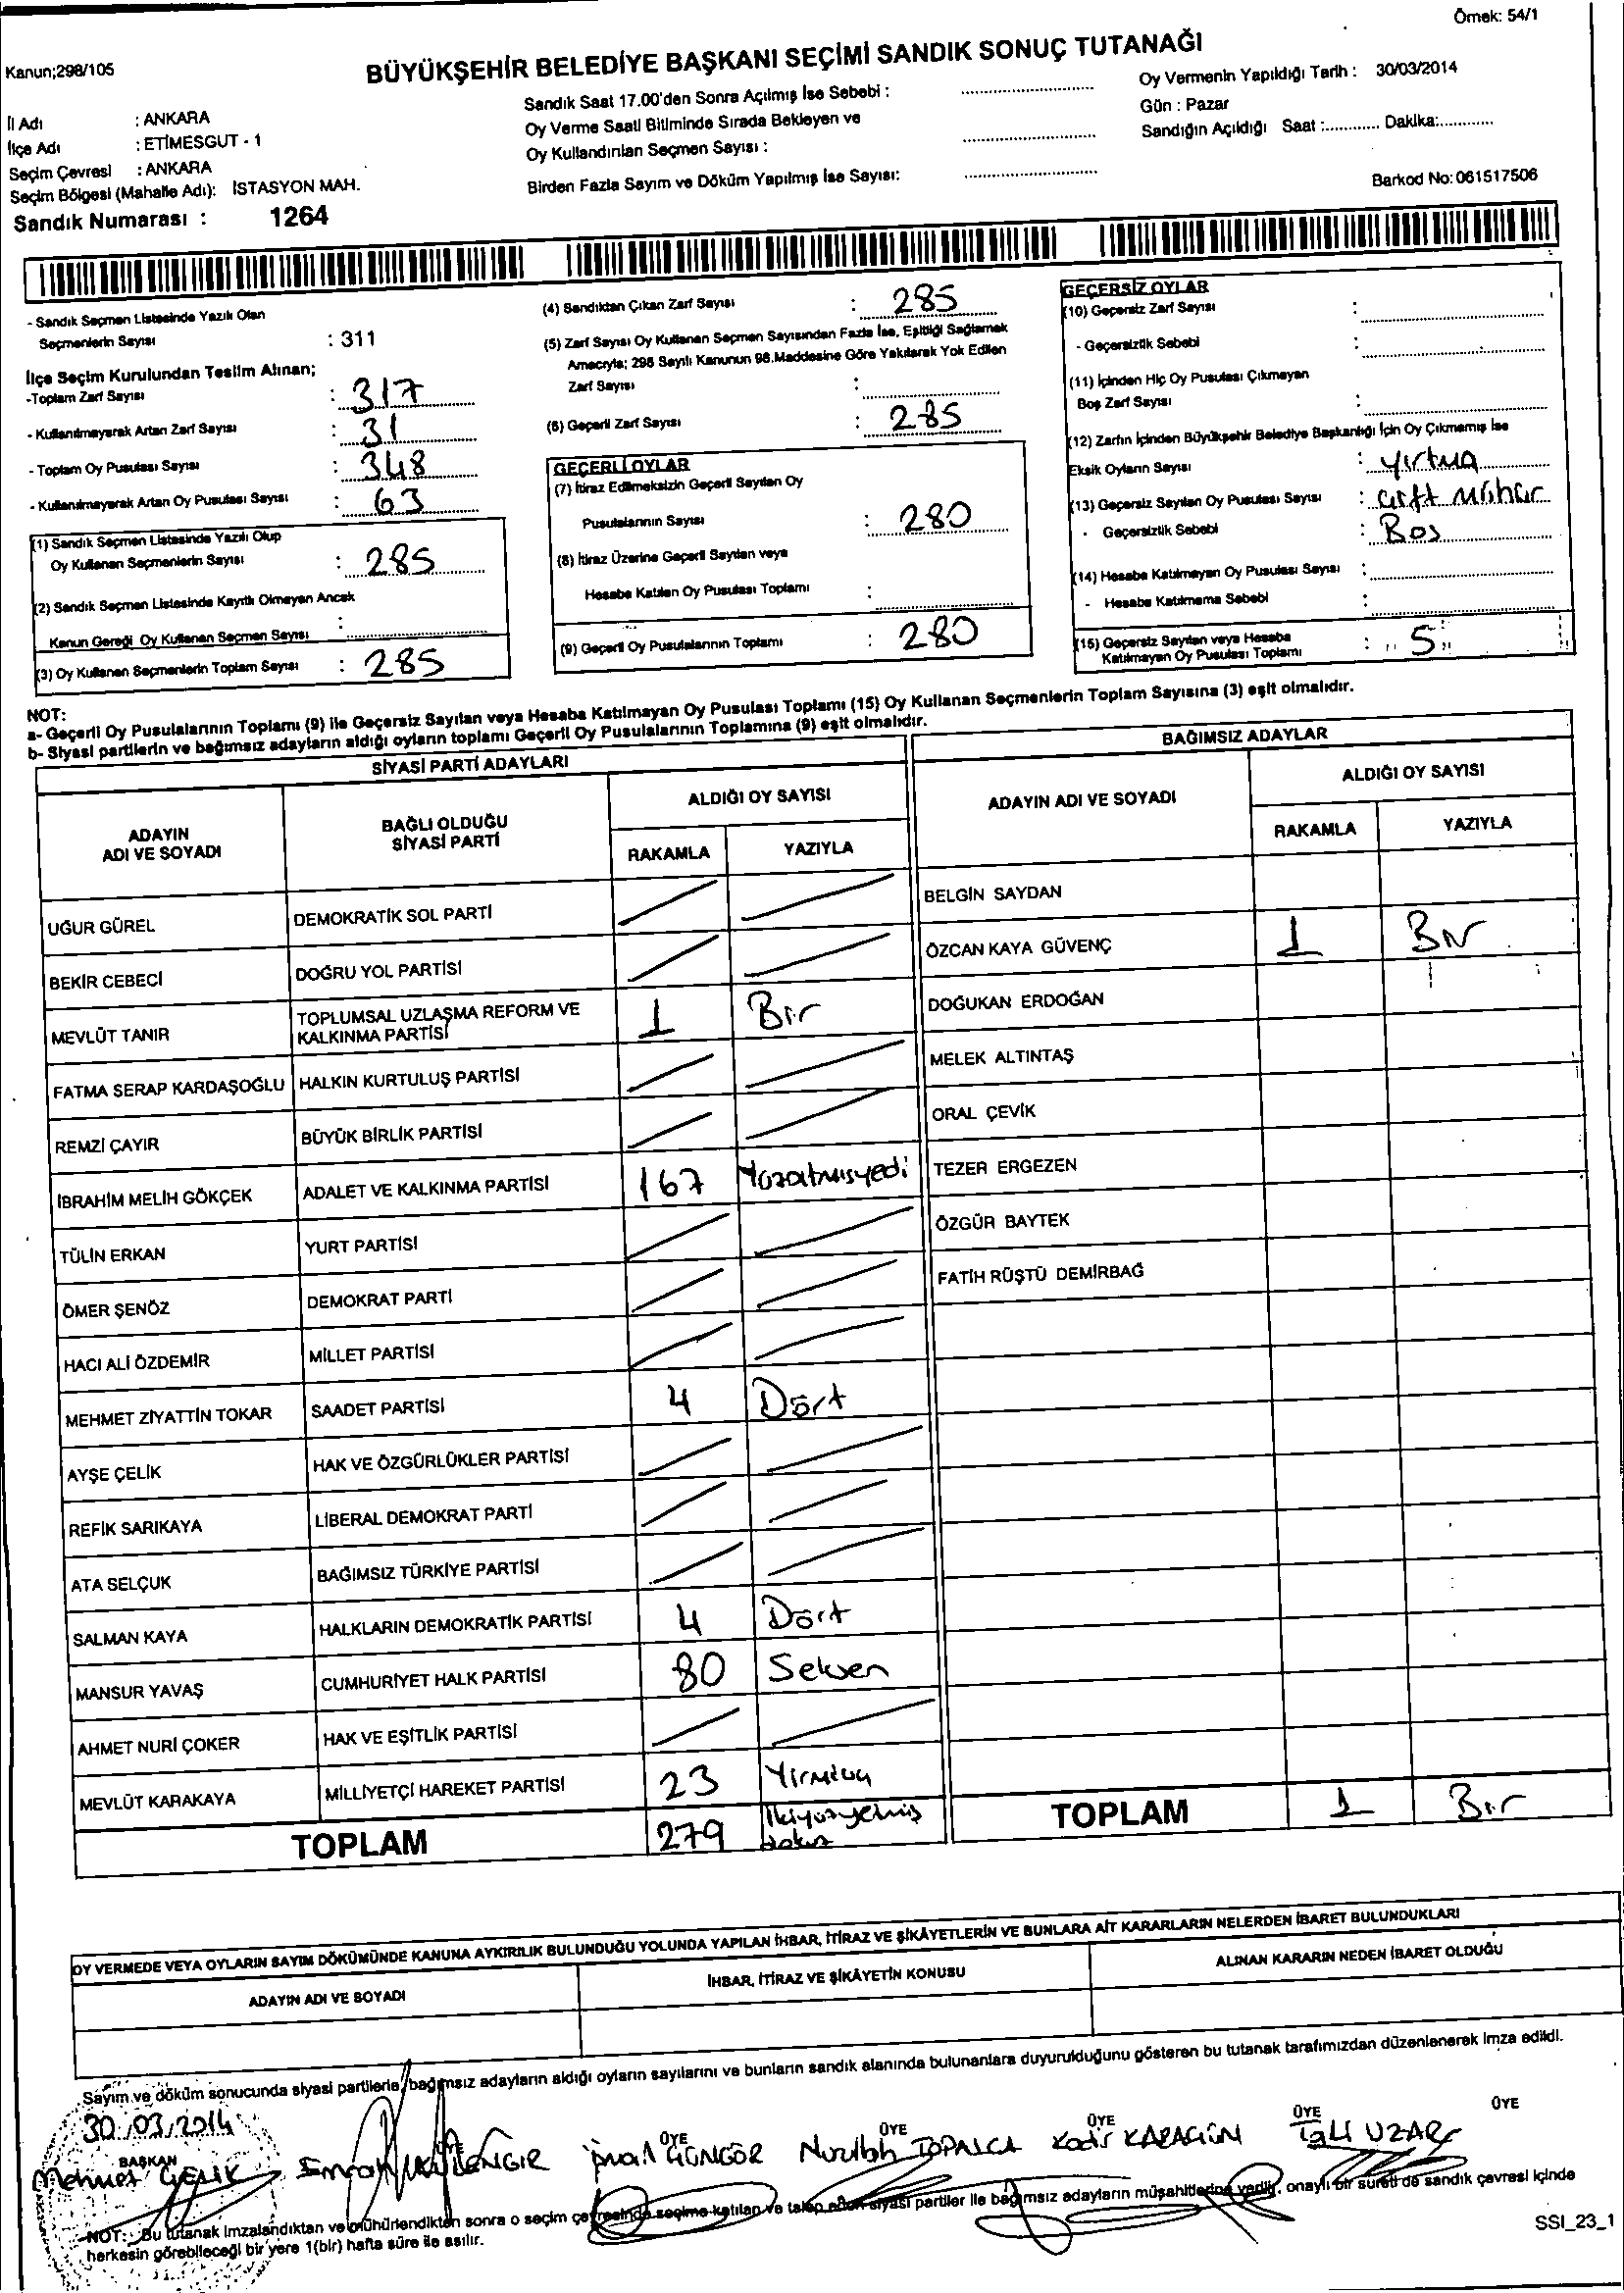 Örnek: 54/1
Kanun;298/105
BÜYÜKŞEHİR BELEDİYE BAŞKANI SEÇİMİ SANDIK SONUÇ TUTANAĞI
İl Adı : ANKARA
İlçe Adı : ETİMESGUT - 1
Seçim Çevresi : ANKARA
Seçim Bölgesi (Mahalle Adı): İSTASYON MAH.
Sandık Numarası : 1264
Sandık Saat 17.00'den Sonra Açılmış İse Sebebi : ..............
Oy Verme Saati Bitiminde Sırada Bekleyen ve
Oy Kullandırılan Seçmen Sayısı : ..............
Birden Fazla Sayım ve Döküm Yapılmış İse Sayısı: ..............
Oy Vermenin Yapıldığı Tarih : 30/03/2014
Gün : Pazar
Sandığın Açıldığı Saat :............ Dakika:............
Barkod No: 061517506
- Sandık Seçmen Listesinde Yazılı Olan
Seçmenlerin Sayısı : 311
İlçe Seçim Kurulundan Teslim Alınan;
-Toplam Zarf Sayısı : 317
- Kullanılmayarak Artan Zarf Sayısı : 31
- Toplam Oy Pusulası Sayısı : 348
- Kullanılmayarak Artan Oy Pusulası Sayısı : 63
(1) Sandık Seçmen Listesinde Yazılı Olup
Oy Kullanan Seçmenlerin Sayısı : 285
(2) Sandık Seçmen Listesinde Kayıtlı Olmayan Ancak
Kanun Gereği Oy Kullanan Seçmen Sayısı :
(3) Oy Kullanan Seçmenlerin Toplam Sayısı : 285
(4) Sandıktan Çıkan Zarf Sayısı : 285
(5) Zarf Sayısı Oy Kullanan Seçmen Sayısından Fazla İse, Eşitliği Sağlamak
Amacıyla; 298 Sayılı Kanunun 98.Maddesine Göre Yakılarak Yok Edilen
Zarf Sayısı :
(6) Geçerli Zarf Sayısı : 285
GEÇERLİ OYLAR
(7) İtiraz Edilmeksizin Geçerli Sayılan Oy
Pusulalarının Sayısı : 280
(8) İtiraz Üzerine Geçerli Sayılan veya
Hesaba Katılan Oy Pusulası Toplamı :
(9) Geçerli Oy Pusulalarının Toplamı : 280
GEÇERSİZ OYLAR
(10) Geçersiz Zarf Sayısı :
- Geçersizlik Sebebi :
(11) İçinden Hiç Oy Pusulası Çıkmayan
Boş Zarf Sayısı :
(12) Zarfın İçinden Büyükşehir Belediye Başkanlığı İçin Oy Çıkmamış İse
Eksik Oyların Sayısı : yırtma
(13) Geçersiz Sayılan Oy Pusulası Sayısı : Çift Mühür
- Geçersizlik Sebebi : Boş
(14) Hesaba Katılmayan Oy Pusulası Sayısı :
- Hesaba Katılmama Sebebi :
(15) Geçersiz Sayılan veya Hesaba
Katılmayan Oy Pusulası Toplamı : 5
NOT:
a- Geçerli Oy Pusulalarının Toplamı (9) ile Geçersiz Sayılan veya Hesaba Katılmayan Oy Pusulası Toplamı (15) Oy Kullanan Seçmenlerin Toplam Sayısına (3) eşit olmalıdır.
b- Siyasi partilerin ve bağımsız adayların aldığı oyların toplamı Geçerli Oy Pusulalarının Toplamına (9) eşit olmalıdır.
SİYASİ PARTİ ADAYLARI
ADAYIN
ADI VE SOYADI
BAĞLI OLDUĞU
SİYASİ PARTİ
ALDIĞI OY SAYISI
RAKAMLA YAZIYLA
UĞUR GÜREL DEMOKRATİK SOL PARTİ
BEKİR CEBECİ DOĞRU YOL PARTİSİ
MEVLÜT TANIR TOPLUMSAL UZLAŞMA REFORM VE
KALKINMA PARTİSİ 1 Bir
FATMA SERAP KARDAŞOĞLU HALKIN KURTULUŞ PARTİSİ
REMZİ ÇAYIR BÜYÜK BİRLİK PARTİSİ
İBRAHİM MELİH GÖKÇEK ADALET VE KALKINMA PARTİSİ 167 Yüzaltmışyedi
TÜLİN ERKAN YURT PARTİSİ
ÖMER ŞENÖZ DEMOKRAT PARTİ
HACI ALİ ÖZDEMİR MİLLET PARTİSİ
MEHMET ZİYATTİN TOKAR SAADET PARTİSİ 4 Dört
AYŞE ÇELİK HAK VE ÖZGÜRLÜKLER PARTİSİ
REFİK SARIKAYA LİBERAL DEMOKRAT PARTİ
ATA SELÇUK BAĞIMSIZ TÜRKİYE PARTİSİ
SALMAN KAYA HALKLARIN DEMOKRATİK PARTİSİ 4 Dört
MANSUR YAVAŞ CUMHURİYET HALK PARTİSİ 80 Seksen
AHMET NURİ ÇOKER HAK VE EŞİTLİK PARTİSİ
MEVLÜT KARAKAYA MİLLİYETÇİ HAREKET PARTİSİ 23 Yirmiüç
TOPLAM 279 İkiyüzyetmiş
dokuz
BAĞIMSIZ ADAYLAR
ADAYIN ADI VE SOYADI
ALDIĞI OY SAYISI
RAKAMLA YAZIYLA
BELGİN SAYDAN
ÖZCAN KAYA GÜVENÇ 1 Bir
DOĞUKAN ERDOĞAN
MELEK ALTINTAŞ
ORAL ÇEVİK
TEZER ERGEZEN
ÖZGÜR BAYTEK
FATİH RÜŞTÜ DEMİRBAĞ
TOPLAM 1 Bir
OY VERMEDE VEYA OYLARIN SAYIM DÖKÜMÜNDE KANUNA AYKIRILIK BULUNDUĞU YOLUNDA YAPILAN İHBAR, İTİRAZ VE ŞİKÂYETLERİN VE BUNLARA AİT KARARLARIN NELERDEN İBARET BULUNDUKLARI
ADAYIN ADI VE SOYADI İHBAR, İTİRAZ VE ŞİKÂYETİN KONUSU ALINAN KARARIN NEDEN İBARET OLDUĞU
Sayım ve döküm sonucunda siyasi partilerle, bağımsız adayların aldığı oyların sayılarını ve bunların sandık alanında bulunanlara duyurulduğunu gösteren bu tutanak tarafımızdan düzenlenerek imza edildi.
30.03.2014
BAŞKAN ÜYE ÜYE ÜYE ÜYE ÜYE ÜYE
Mehmet ÇELİK GÜNGÖR Nurullah TOPALCA Kadir KARAGÜN UZAR
NOT: Bu tutanak imzalandıktan ve mühürlendikten sonra o seçim çevresinde seçime katılan ve talep eden siyasi partiler ile bağımsız adayların müşahitlerine verilir, onaylı bir sureti de sandık çevresi içinde
herkesin görebileceği bir yere 1(bir) hafta süre ile asılır.
SSI_23_1